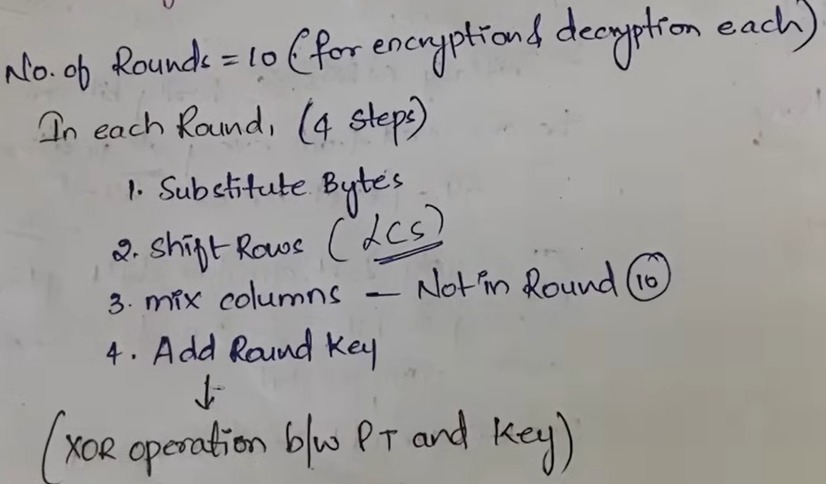 No. of Rounds = 10 (for encryption & decryption each)
In each Round, (4 steps)
1. Substitute Bytes
2. Shift Rows (LCS)
3. mix columns — Not in Round 10
4. Add Round Key
↓
(XOR operation b/w PT and Key)